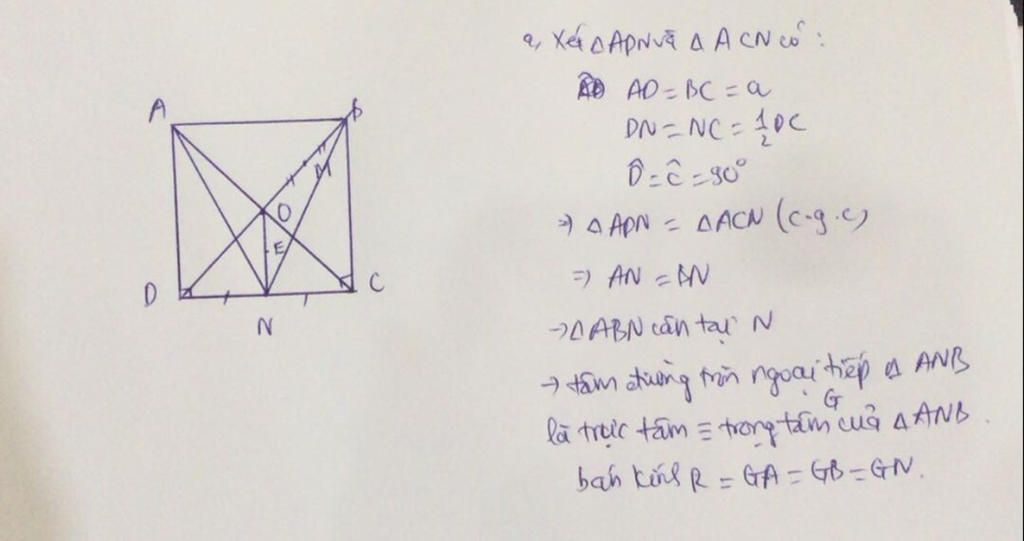 A B
M
O
E
D C
N
a, Xét △ADN và △ACN có:
AD = BC = a
DN = NC = 1/2 DC
D̂ = Ĉ = 90°
⇒ △ADN = △ACN (c.g.c)
⇒ AN = BN
→ △ABN cân tại N
→ tâm đường tròn ngoại tiếp △ ANB
là trực tâm ≡ trọng tâm G của △ANB.
bán kính R = GA = GB = GN.